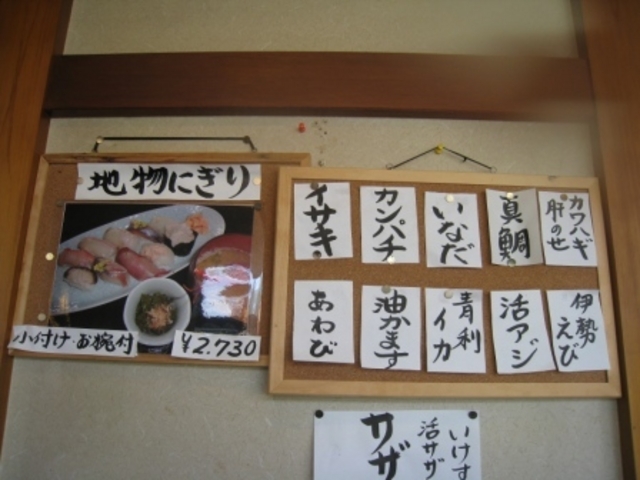 地物にぎり
小付け・お椀付
¥2.730
イサキ
カンパチ
いなだ
真鯛
カワハギ
肝のせ
あわび
油かます
青利
イカ
活アジ
伊勢
えび
いけす
活サザ
サザ